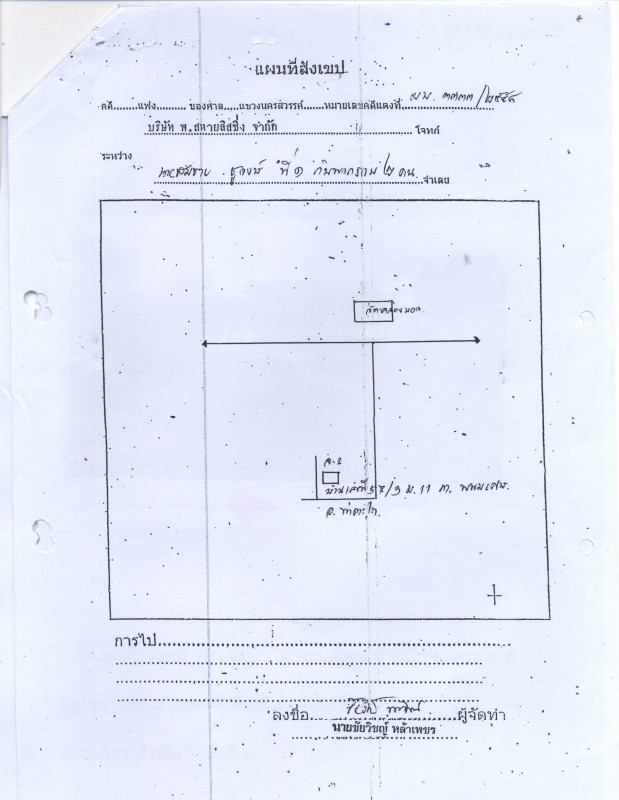 แผนที่สังเขป
คดี......แพ่ง......... ของศาล....แขวงนครสวรรค์......หมายเลขคดีแดงที่ ผบ. ๓๓๓๓ /๒๕๕๘
บริษัท พ.สหายลิสซิ่ง จำกัด โจทก์
ระหว่าง
ที่ ๑ กับพวกรวม ๒ คน จำเลย
วัดคลองบอน
จ.1
บ้านเลขที่ 57/3 ม.11 ต. พนมเศษ
อ. ท่าตะโก
การไป
ลงชื่อ ผู้จัดทำ
นายชัยวิชญ์ หล้าเพชร